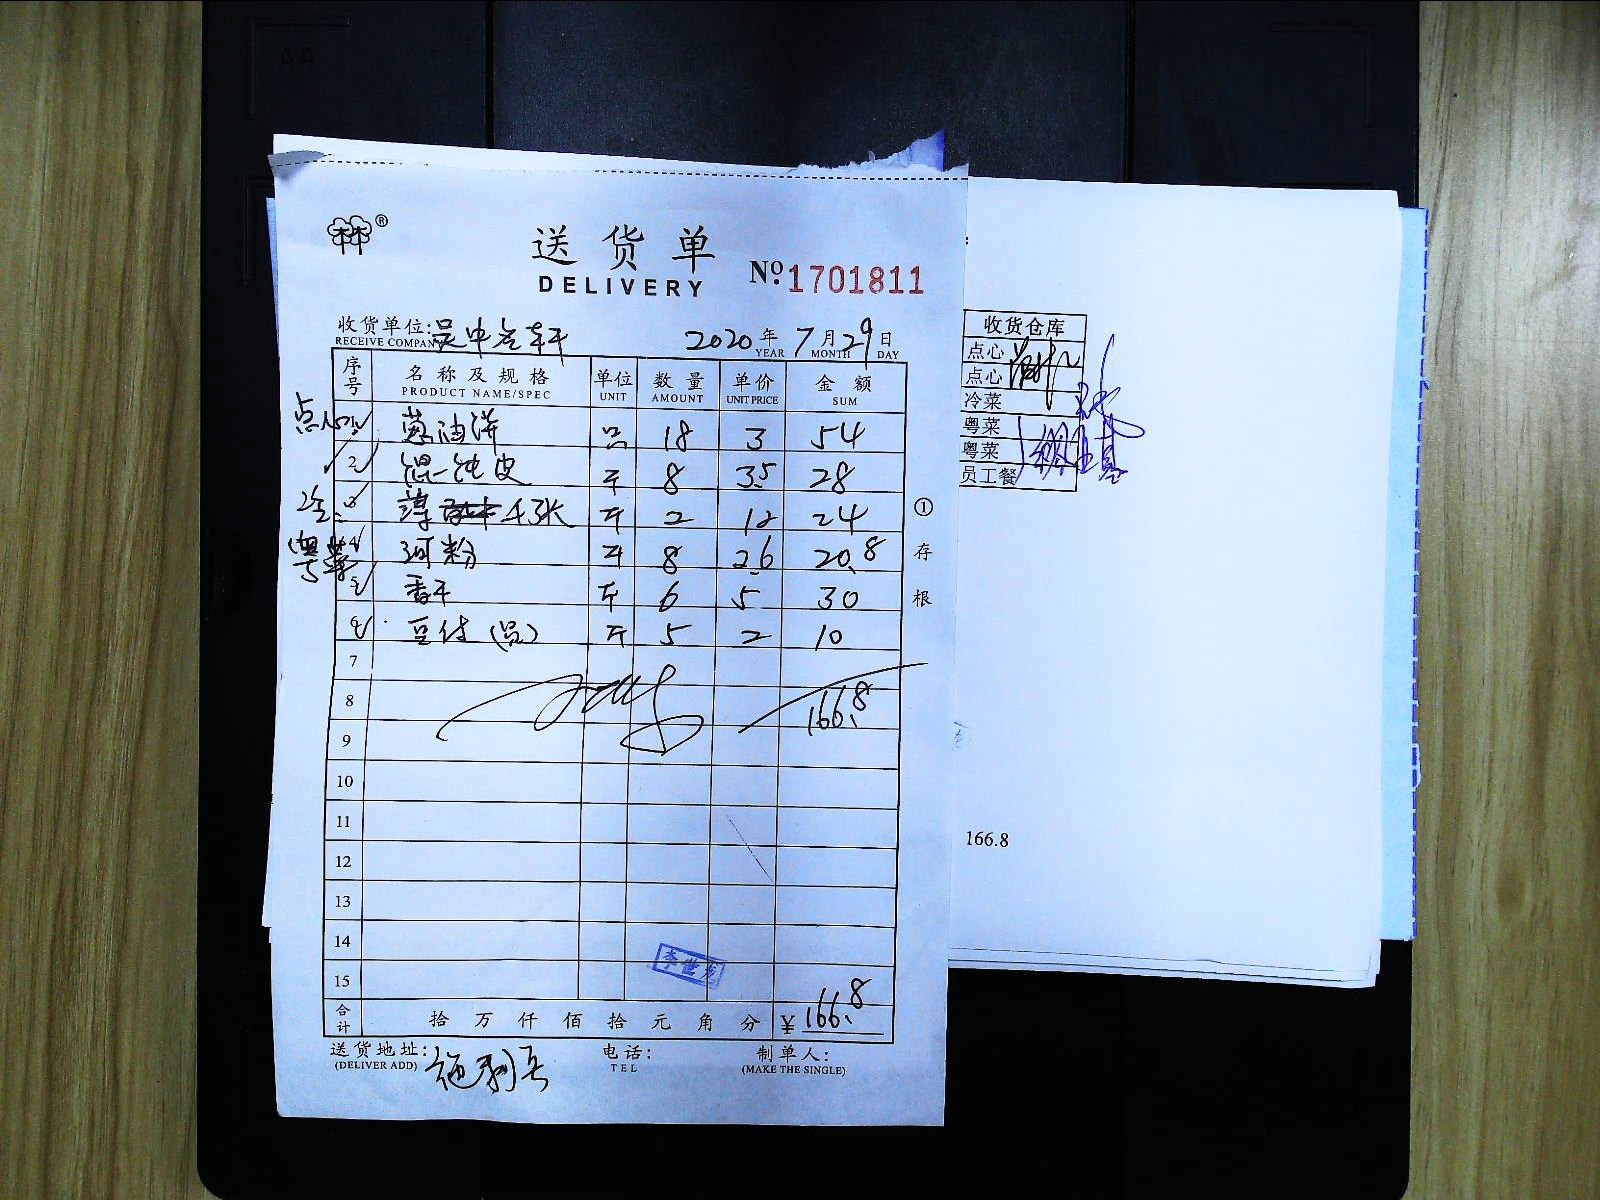 送货单
DELIVERY
Nº:1701811
收货单位:
RECEIVE COMPANY
2020年7月29日
YEAR MONTH DAY
序号 名称及规格 单位 数量 单价 金额
PRODUCT NAME/SPEC UNIT AMOUNT UNIT PRICE SUM
点心 1 葱油饼 只 18 3 54
2 馄饨皮 斤 8 3.5 28
冷 3 薄千张 斤 2 12 24
粤菜 4 河粉 斤 8 2.6 20.8
5 香干 斤 6 5 30
6 豆付(员) 斤 5 2 10
7
8 166.8
9
10
11
12
13
14
15
合计 拾万仟佰拾元角分 ¥166.8
送货地址:
(DELIVER ADD)
电话:
TEL
制单人:
(MAKE THE SINGLE)
①存根
收货仓库
点心
点心
冷菜
粤菜
粤菜
员工餐
166.8